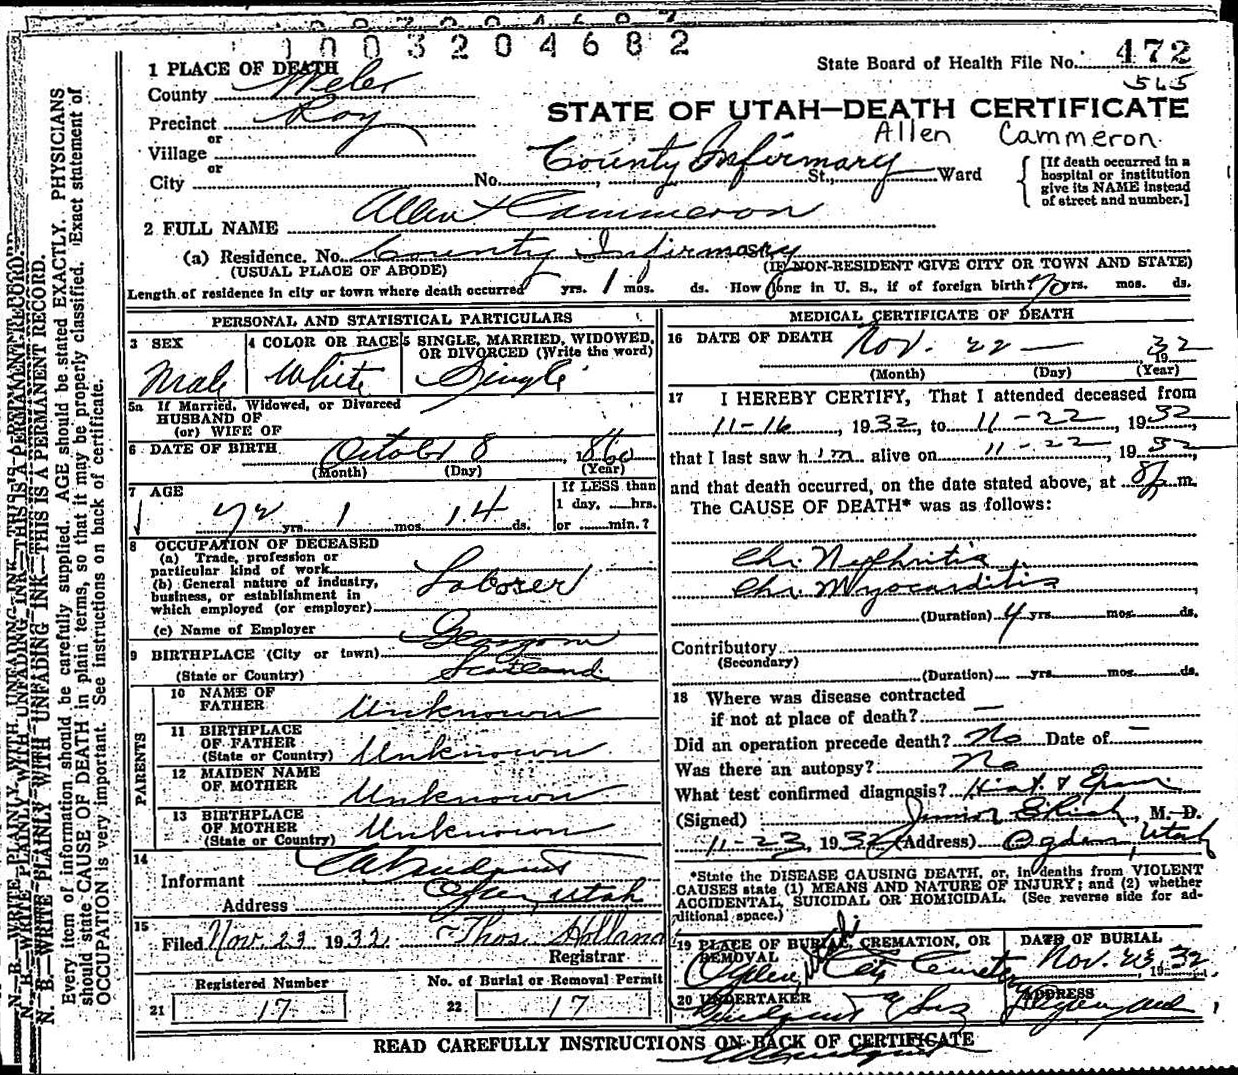 1003204682
1 PLACE OF DEATH
State Board of Health File No. 472
565
County Weber
STATE OF UTAH—DEATH CERTIFICATE
Precinct Roy
Allen Cammeron
or
Village
County Infirmary
or
City No. , St., Ward
[If death occurred in a
hospital or institution
give its NAME instead
of street and number.]
2 FULL NAME Allen Cammeron
(a) Residence. No. County Infirmary
(USUAL PLACE OF ABODE) (IF NON-RESIDENT GIVE CITY OR TOWN AND STATE)
Length of residence in city or town where death occurred yrs. 1 mos. ds. How long in U. S., if of foreign birth? 70 yrs. mos. ds.
PERSONAL AND STATISTICAL PARTICULARS
3 SEX
Male
4 COLOR OR RACE
White
5 SINGLE, MARRIED, WIDOWED,
OR DIVORCED (Write the word)
Single
5a If Married, Widowed, or Divorced
HUSBAND OF
(or) WIFE OF
6 DATE OF BIRTH October 8, 1860
(Month) (Day) (Year)
7 AGE
72 yrs. 1 mos. 14 ds.
If LESS than
1 day, hrs.
or min.?
8 OCCUPATION OF DECEASED
(a) Trade, profession or
particular kind of work
(b) General nature of industry,
business, or establishment in
which employed (or employer)
Laborer
(c) Name of Employer
9 BIRTHPLACE (City or town)
(State or Country) Scotland
PARENTS
10 NAME OF
FATHER Unknown
11 BIRTHPLACE
OF FATHER
(State or Country) Unknown
12 MAIDEN NAME
OF MOTHER Unknown
13 BIRTHPLACE
OF MOTHER
(State or Country) Unknown
14
Informant
Address Ogden, Utah
15
Filed Nov. 23 1932 Thos. Holland
Registrar
Registered Number
21 17
No. of Burial or Removal Permit
22 17
MEDICAL CERTIFICATE OF DEATH
16 DATE OF DEATH Nov. 22 — 1932
(Month) (Day) (Year)
17 I HEREBY CERTIFY, That I attended deceased from
11-16, 1932, to 11-22, 1932
that I last saw him alive on 11-22, 1932,
and that death occurred, on the date stated above, at 8 p m.
The CAUSE OF DEATH* was as follows:
Chr. Nephritis
Chr. Myocarditis
(Duration) 4 yrs. mos. ds.
Contributory
(Secondary)
(Duration) yrs. mos. ds.
18 Where was disease contracted
if not at place of death? —
Did an operation precede death? No Date of —
Was there an autopsy? No
What test confirmed diagnosis? Hist. & Exam.
(Signed) , M. D.
11-23, 1932 (Address) Ogden, Utah
*State the DISEASE CAUSING DEATH, or, in deaths from VIOLENT
CAUSES state (1) MEANS AND NATURE OF INJURY; and (2) whether
ACCIDENTAL, SUICIDAL OR HOMICIDAL. (See reverse side for ad-
ditional space.)
19 PLACE OF BURIAL, CREMATION, OR
REMOVAL
Ogden, Utah City Cemetery
DATE OF BURIAL
Nov. 23, 1932
20 UNDERTAKER
ADDRESS
READ CAREFULLY INSTRUCTIONS ON BACK OF CERTIFICATE
N. B.—WRITE PLAINLY WITH UNFADING INK—THIS IS A PERMANENT RECORD.
Every item of information should be carefully supplied. AGE should be stated EXACTLY. PHYSICIANS
should state CAUSE OF DEATH in plain terms, so that it may be properly classified. Exact statement of
OCCUPATION is very important. See instructions on back of certificate.